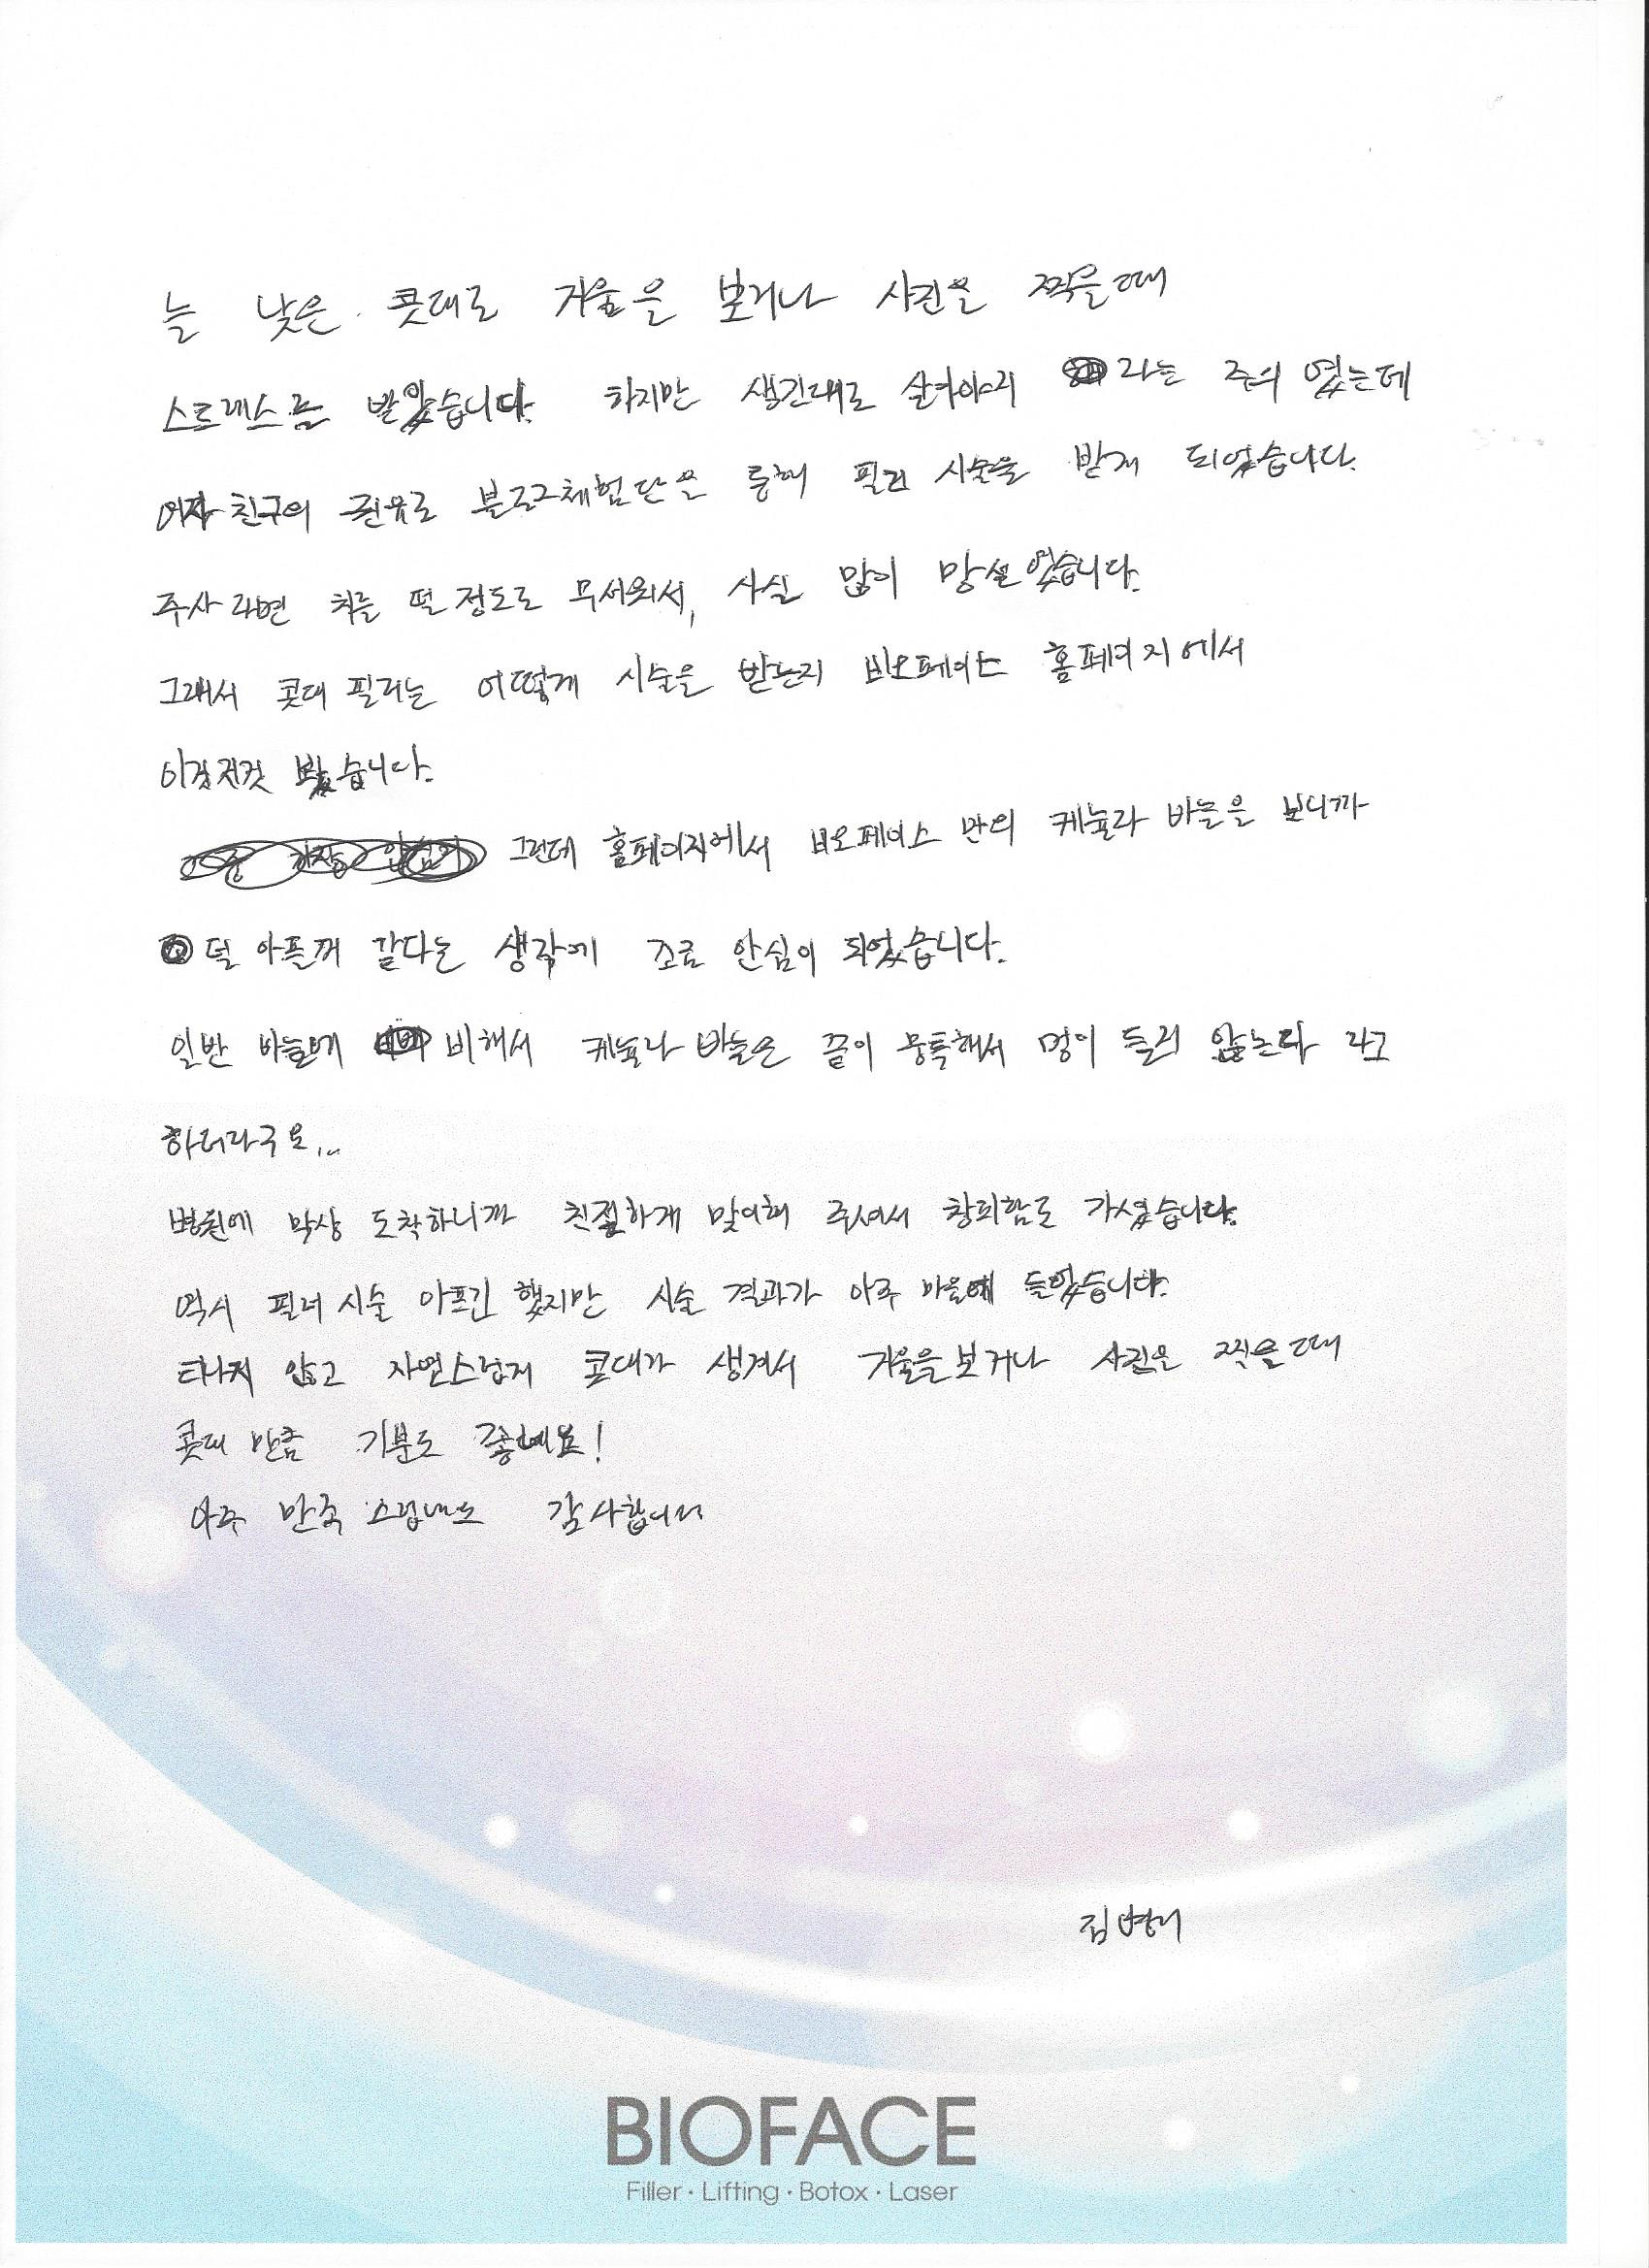 늘 낮은 콧대로 거울을 보거나 사진을 찍을때
스트레스를 받았습니다. 하지만 생긴대로 살려야지 라는 주의 였는데
여자 친구의 권유로 블로그체험단을 통해 필러 시술을 받게 되었습니다.
주사라면 치를 떨 정도로 무서워서, 사실 많이 망설였습니다.
그래서 콧대 필러는 어떻게 시술을 받는지 비오페이스 홈페이지에서
이것저것 봤습니다.
그런데 홈페이지에서 비오페이스 만의 케뉼라 바늘을 보니까
덜 아플꺼 같다는 생각에 조금 안심이 되었습니다.
일반 바늘에 비해서 케뉼라 바늘은 끝이 뭉툭해서 멍이 들지 않는다 라고
하더라구요...
병원에 막상 도착하니까 친절하게 맞이해 주셔서 창피함도 가셨습니다.
역시 필러 시술 아프긴 했지만 시술 결과가 아주 마음에 들었습니다.
티나지 않고 자연스럽게 콧대가 생겨서 거울을 보거나 사진을 찍을때
콧대 만큼 기분도 좋네요!
아주 만족 스럽네요 감사합니다
BIOFACE
Filler · Lifting · Botox · Laser